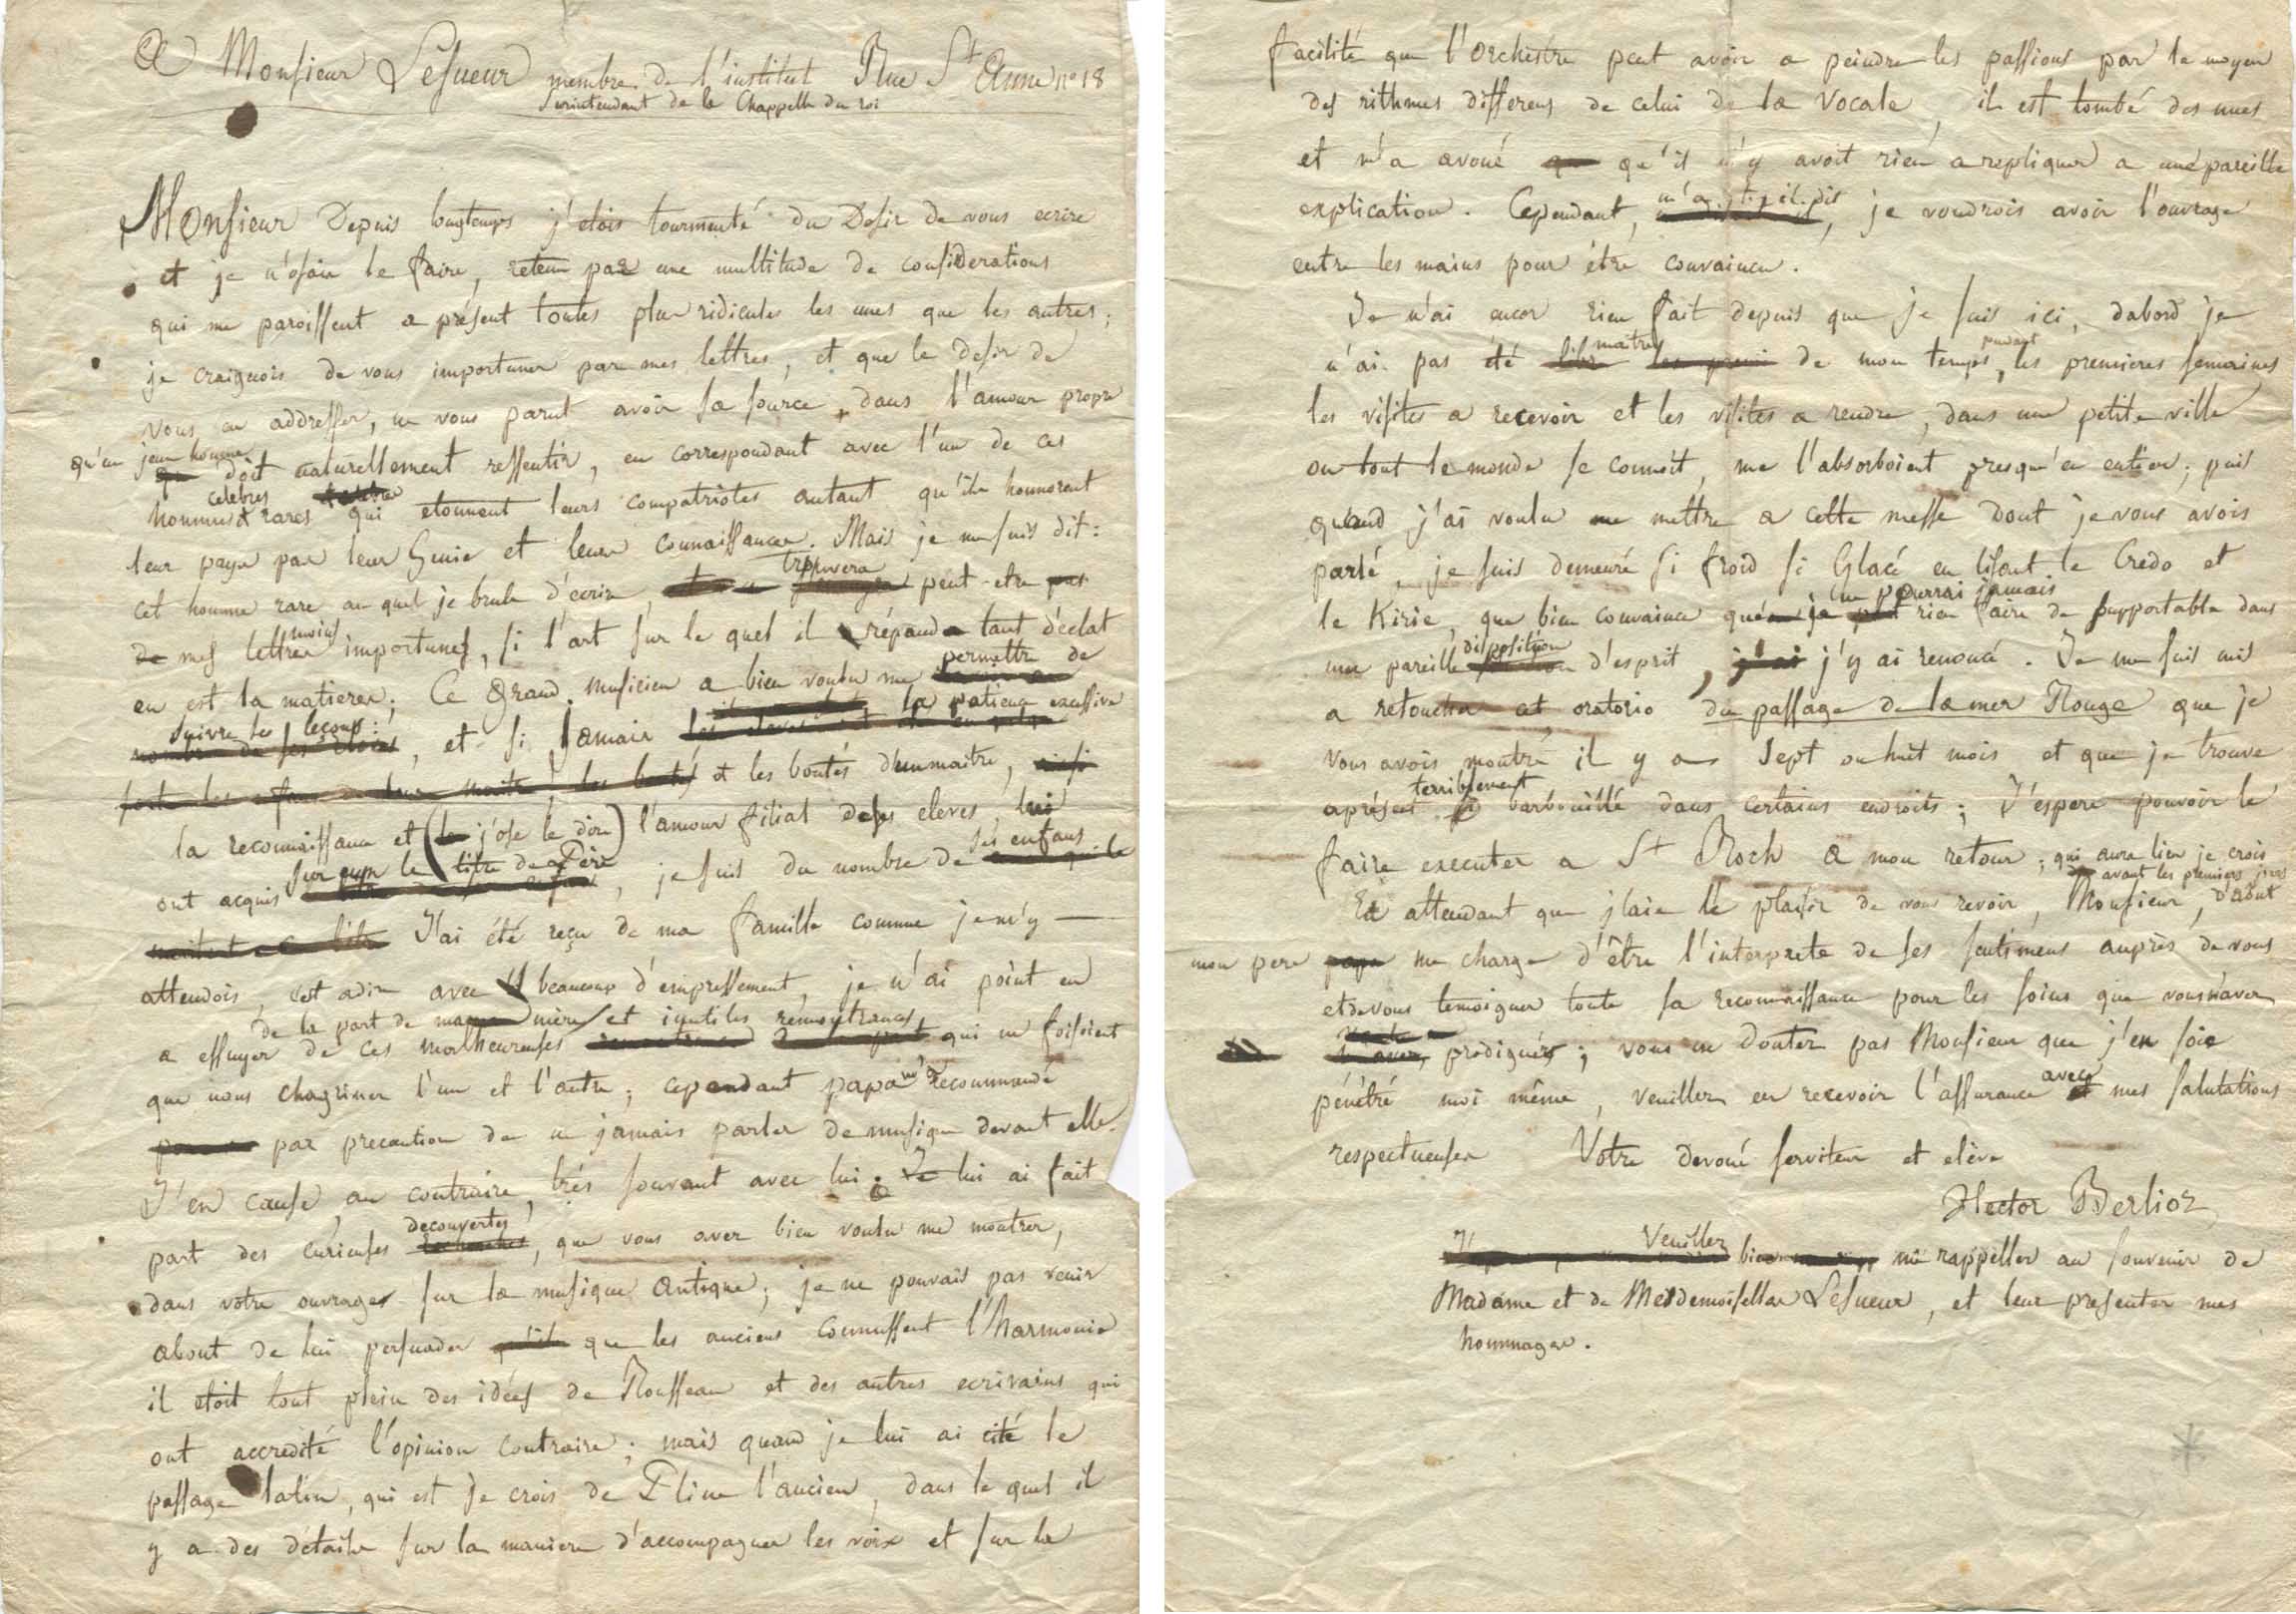 A Monsieur LeSueur membre de l'institut Rue St Anne n° 18
Surintendant de la Chappelle du roi
Monsieur Depuis longtemps j'etois tourmenté du Desir de vous ecrire
et je n'osois le faire, retenu par une multitude de considerations
qui me paroissent a présent toutes plus ridicules les unes que les autres;
je craignois de vous importuner par mes lettres, et que le desir de
vous en addresser, ne vous parut avoir sa source, dans l'amour propre
qu'un jeune homme
doit naturellement ressentir, en correspondant avec l'un de ces
celebres
hommes rares qui etonnent leurs compatriotes autant qu'ils honnorent
leur pays par leur Genie et leurs connaissances. Mais je me suis dit:
trouvera
cet homme rare au quel je brule d'écrire, peut-etre
moins
mes lettres importunes, si l'art sur le quel il répand tant d'éclat
permettre de
en est la matiere; Ce Grand musicien a bien voulu me
suivre ses leçons; la patience excessive
, et si jamais
et les bontés d'un maitre,
la reconnaissance et (j'ose le dire) l'amour filial de ses eleves, lui
sur eux le titre de Père ses enfans
ont acquis , je suis du nombre de
J'ai été reçu de ma famille comme je m'y
attendois, c'est adire avec beaucoup d'empressement, je n'ai point eu
de la part de ma mère et inutiles remontrances,
a essuyer de ces malheureuses qui ne faisoient
que nous chagriner l'un et l'autre; cependant papa m'a recommandé
par precaution de ne jamais parler de musique devant elle.
J'en cause, au contraire, très souvent avec lui; Je lui ai fait
decouvertes
part des curieuses , que vous avez bien voulu me montrer,
dans votre ouvrage sur la musique Antique; je ne pouvais pas venir
about de lui persuader que les anciens connussent l'harmonie
il etoit tout plein des idées de Rousseau et des autres ecrivains qui
ont accredité l'opinion contraire; mais quand je lui ai cité le
passage latin, qui est Je crois de Pline l'ancien, dans le quel il
y a des détails sur la maniere d'accompagner les voix et sur la
facilité que l'Orchestre peut avoir a peindre les passions par le moyen
des rithmes differens de celui de la Vocale, il est tombé des nues
et m'a avoué qu'il n'y avoit rien a repliquer a une pareille
m'a-t-il dit
explication. Cependant, , je voudrois avoir l'ouvrage
entre les mains pour être convaincu.
Je n'ai encor rien fait depuis que je suis ici, dabord je
maitre pendant
n'ai pas été de mon temps, les premieres semaines
les visites a recevoir et les visites a rendre, dans une petite ville
ou tout le monde se connoit, me l'absorboient presqu'en entier; puis
quand j'ai voulu me mettre a cette messe dont je vous avois
parlé, je suis demeuré si froid si Glacé en lisant le Credo et
ne pourrai jamais
le Kirie, que bien convaincu que rien faire de supportable dans
disposition
une pareille d'esprit, j'y ai renoncé. Je me suis mis
a retoucher cet oratorio du passage de la mer Rouge que je
vous avois montré il y a sept ou huit mois et que je trouve
terriblement
aprésent barbouillé dans certains endroits; J'espere pouvoir le
faire executer a St Roch a mon retour; qui aura lieu je crois
avant les premiers jours
d'aout
En attendant que j'aie le plaisir de vous revoir, Monsieur,
mon pere me charge d'être l'interprete de ses sentimens auprès de vous
et de vous temoigner toute sa reconnaissance pour les soins que vous m'avez
prodigués; vous ne doutez pas Monsieur que j'en sois
avec
pénétré moi même, veuillez en recevoir l'assurance mes salutations
respectueuses Votre devoué serviteur et elève
Hector Berlioz
Veuillez
bien me rappeller au souvenir de
Madame et de Mesdemoiselles LeSueur, et leur presenter mes
hommages.